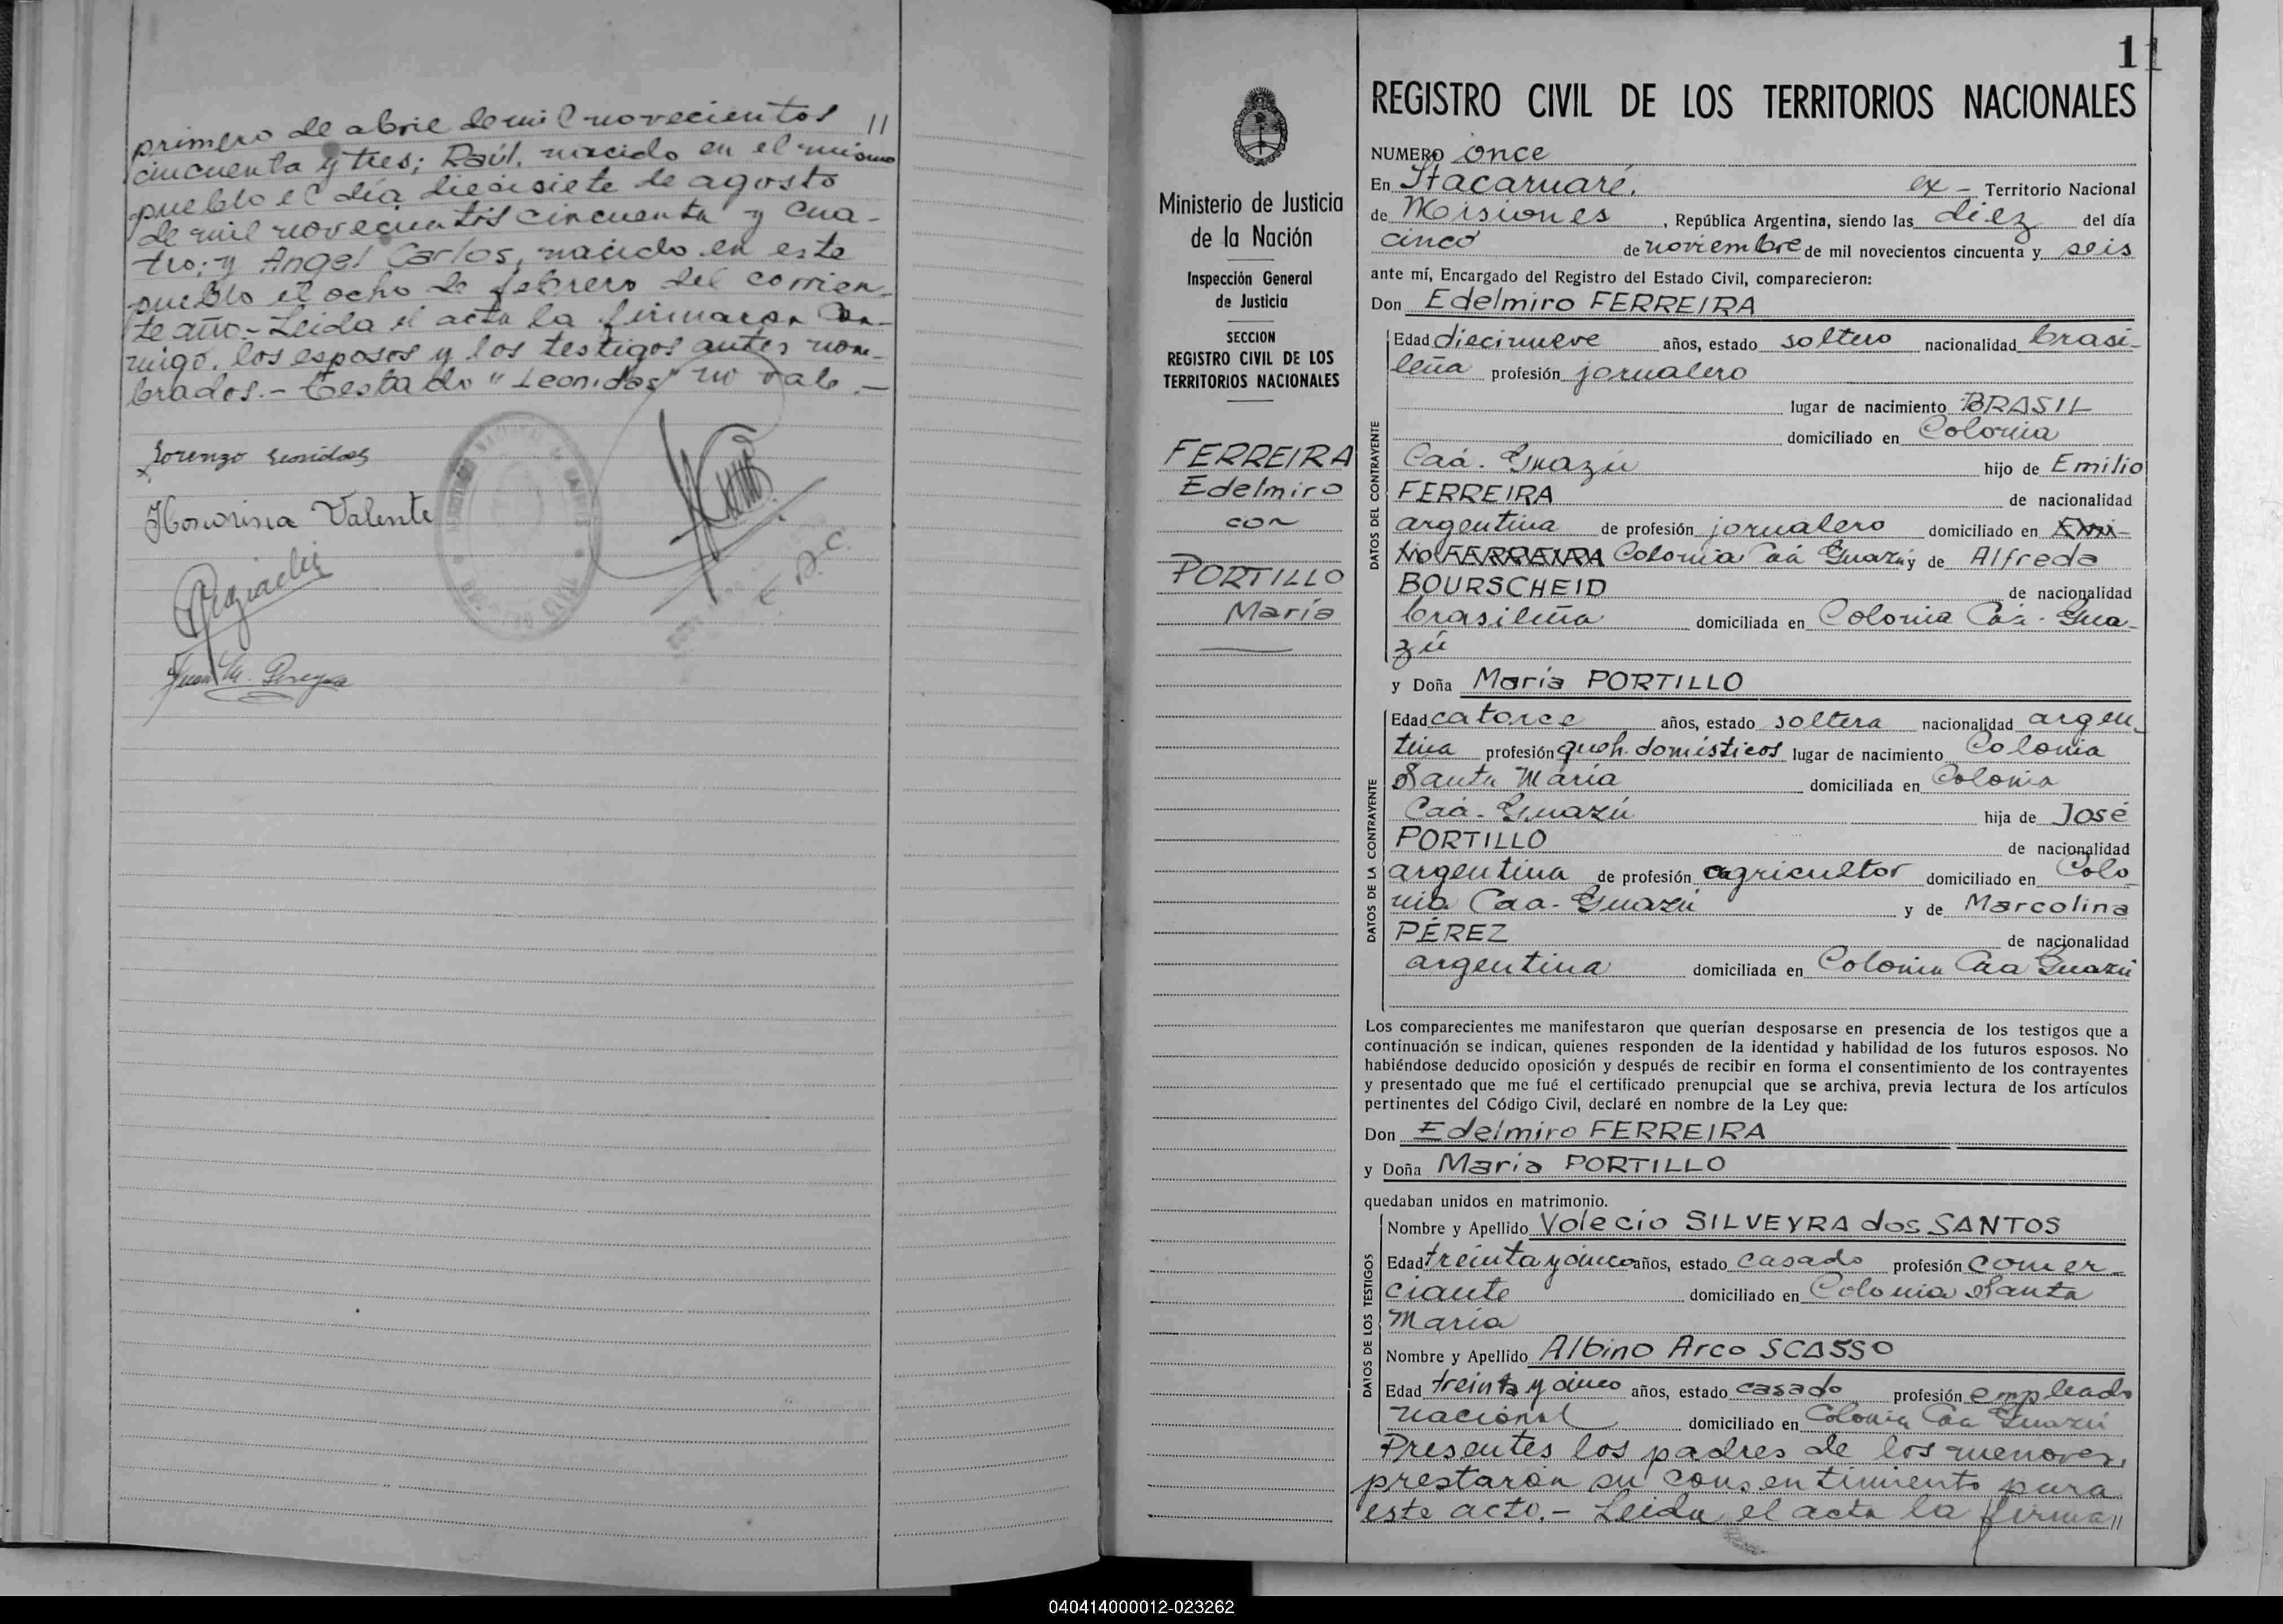 primero de abril de mil novecientos //
cincuenta y tres; Raúl, nacido en el mismo
pueblo el día diecisiete de agosto
de mil novecientos cincuenta y cua-
tro; y Angel Carlos, nacido en este
pueblo el ocho de febrero del corrien-
te año.- Leida el acta la firmaron con-
migo, los esposos y los testigos antes nom-
brados.- Testado "Leonidas" no vale.-
Lorenzo Leonidas
Honorina Valente
Juan M. Pereyra
11
REGISTRO CIVIL DE LOS TERRITORIOS NACIONALES
Ministerio de Justicia
de la Nación
Inspección General
de Justicia
SECCION
REGISTRO CIVIL DE LOS
TERRITORIOS NACIONALES
FERREIRA
Edelmiro
con
PORTILLO
María
NUMERO once
En Itacaruaré, ex- Territorio Nacional
de Misiones, República Argentina, siendo las diez del día
cinco de noviembre de mil novecientos cincuenta y seis
ante mí, Encargado del Registro del Estado Civil, comparecieron:
Don Edelmiro FERREIRA
DATOS DEL CONTRAYENTE
Edad diecinueve años, estado soltero nacionalidad brasi-
leña profesión jornalero
lugar de nacimiento BRASIL
domiciliado en Colonia
Caá-Guazú hijo de Emilio
FERREIRA de nacionalidad
argentina de profesión jornalero domiciliado en Emi-
lio FERREIRA Colonia Caá Guazú y de Alfreda
BOURSCHEID de nacionalidad
brasileña domiciliada en Colonia Caá-Gua-
zú
y Doña María PORTILLO
DATOS DE LA CONTRAYENTE
Edad catorce años, estado soltera nacionalidad argen-
tina profesión queh. domésticos lugar de nacimiento Colonia
Santa María domiciliada en Colonia
Caá-Guazú hija de José
PORTILLO de nacionalidad
argentina de profesión agricultor domiciliado en Colo-
nia Caa-Guazú y de Marcolina
PÉREZ de nacionalidad
argentina domiciliada en Colonia Caa Guazú
Los comparecientes me manifestaron que querían desposarse en presencia de los testigos que a
continuación se indican, quienes responden de la identidad y habilidad de los futuros esposos. No
habiéndose deducido oposición y después de recibir en forma el consentimiento de los contrayentes
y presentado que me fué el certificado prenupcial que se archiva, previa lectura de los artículos
pertinentes del Código Civil, declaré en nombre de la Ley que:
Don Edelmiro FERREIRA
y Doña Maria PORTILLO
quedaban unidos en matrimonio.
DATOS DE LOS TESTIGOS
Nombre y Apellido Volecio SILVEYRA dos SANTOS
Edad treinta y cinco años, estado casado profesión comer-
ciante domiciliado en Colonia Santa
María
Nombre y Apellido Albino Arco SCASSO
Edad treinta y cinco años, estado casado profesión empleado
nacional domiciliado en Colonia Caa Guazú
Presentes los padres de los menores,
prestaron su consentimiento para
este acto.- Leida el acta la firma//
040414000012-023262